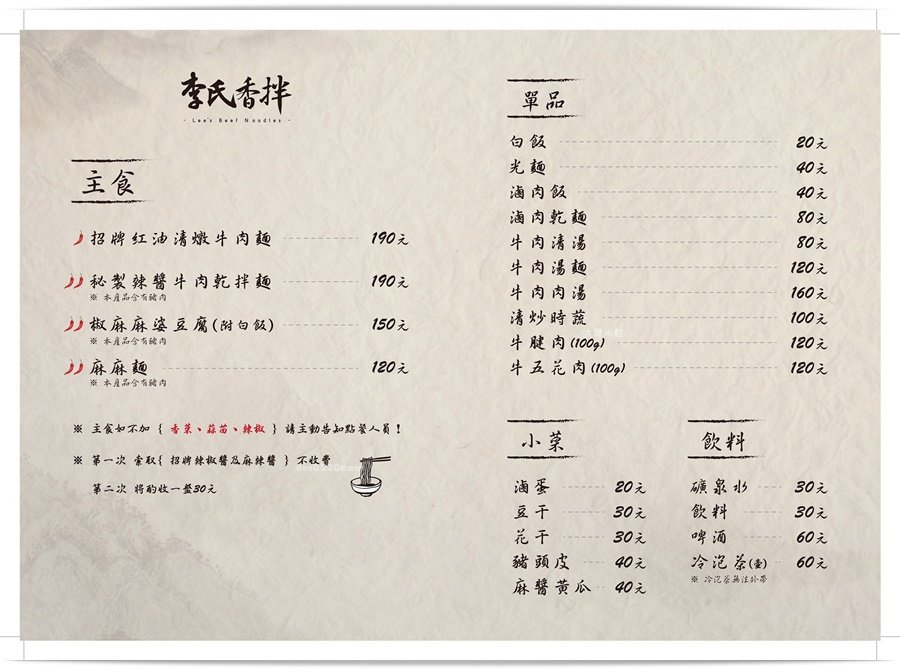 李氏香拌
- Lee's Beef Noodles -
主食
招牌紅油清燉牛肉麵 190元
秘製辣醬牛肉乾拌麵 190元
※ 本產品含有豬肉
椒麻麻婆豆腐(附白飯) 150元
※ 本產品含有豬肉
麻麻麵 120元
※ 本產品含有豬肉
※ 主食如不加 { 香菜、蒜苗、辣椒 } 請主動告知點餐人員!
※ 第一次 索取{ 招牌辣椒醬及麻辣醬 } 不收費
第二次 將酌收一盤30元
單品
白飯 20元
光麵 40元
滷肉飯 40元
滷肉乾麵 80元
牛肉清湯 80元
牛肉湯麵 120元
牛肉肉湯 160元
清炒時蔬 100元
牛腱肉(100g) 120元
牛五花肉(100g) 120元
小菜
滷蛋 20元
豆干 30元
花干 30元
豬頭皮 40元
麻醬黃瓜 40元
飲料
礦泉水 30元
飲料 30元
啤酒 60元
冷泡茶(壺) 60元
※ 冷泡茶無法外帶